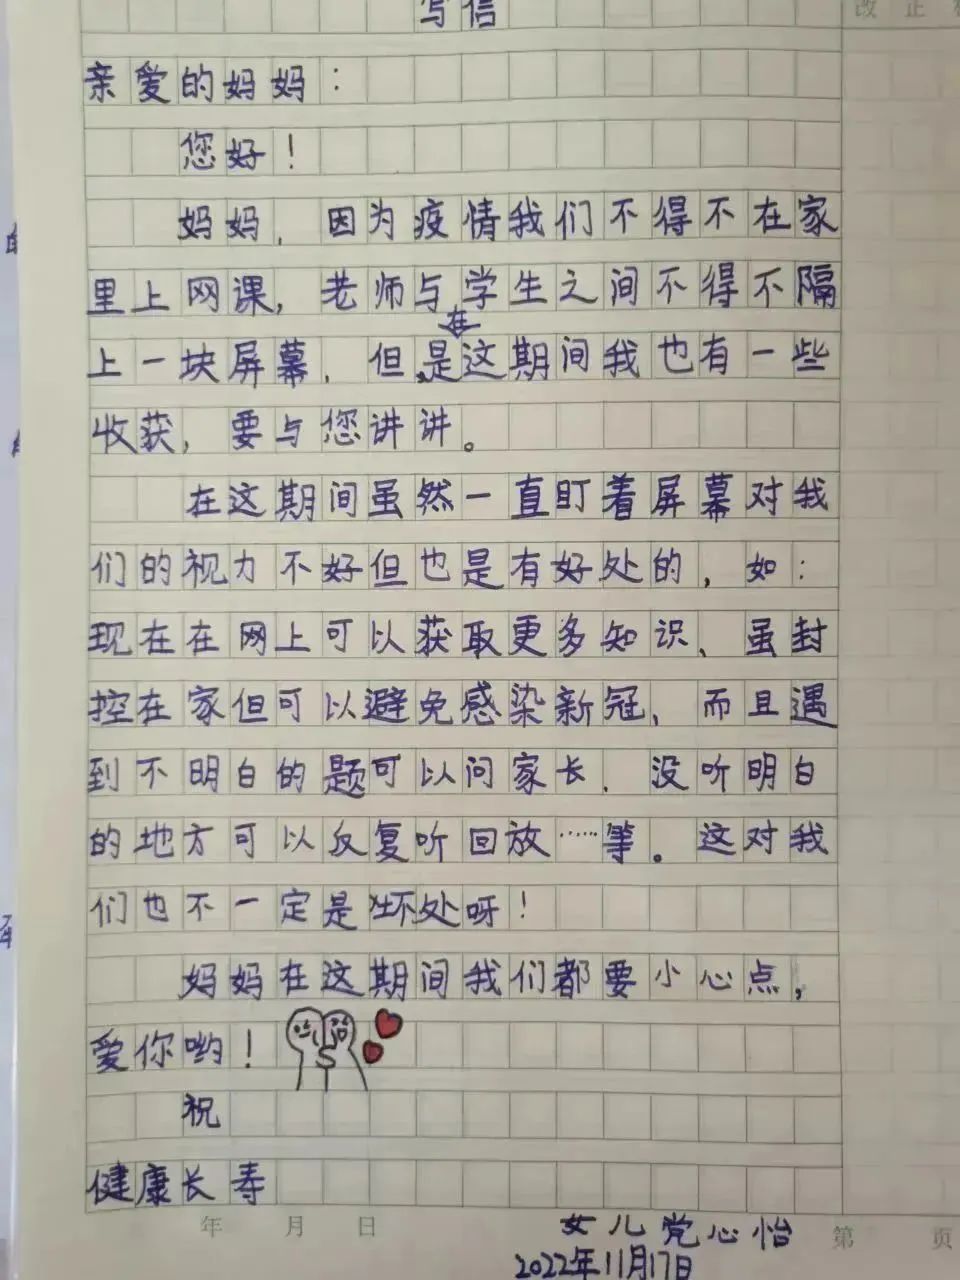 写信
改正
亲爱的妈妈：
您好！
妈妈，因为疫情我们不得不在家
里上网课，老师与学生之间不得不隔
在
上一块屏幕，但是这期间我也有一些
收获，要与您讲讲。
在这期间虽然一直盯着屏幕对我
们的视力不好但也是有好处的，如：
现在在网上可以获取更多知识、虽封
控在家但可以避免感染新冠、而且遇
到不明白的题可以问家长、没听明白
的地方可以反复听回放……等。这对我
们也不一定是坏处呀！
妈妈在这期间我们都要小心点，
爱你哟！
祝
健康长寿
年 月 日
女儿党心怡
第 页
2022年11月17日